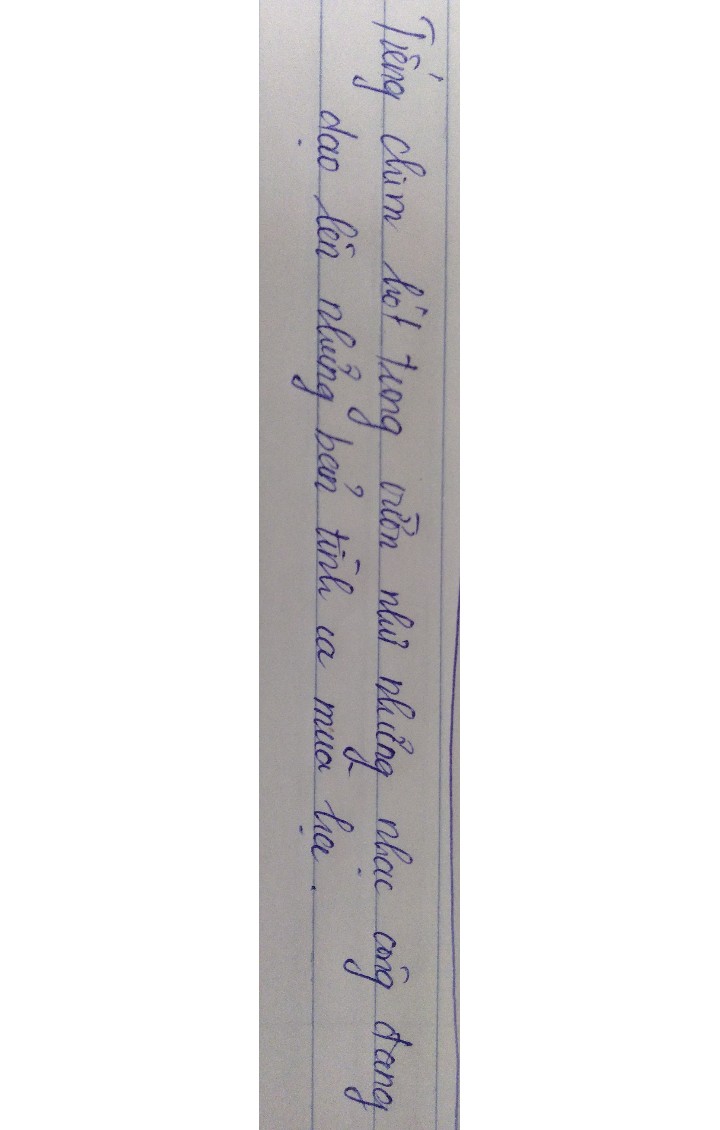 Tiếng chim hót trong vườn như những nhạc công đang
dạo lên những bản tình ca mùa hạ.